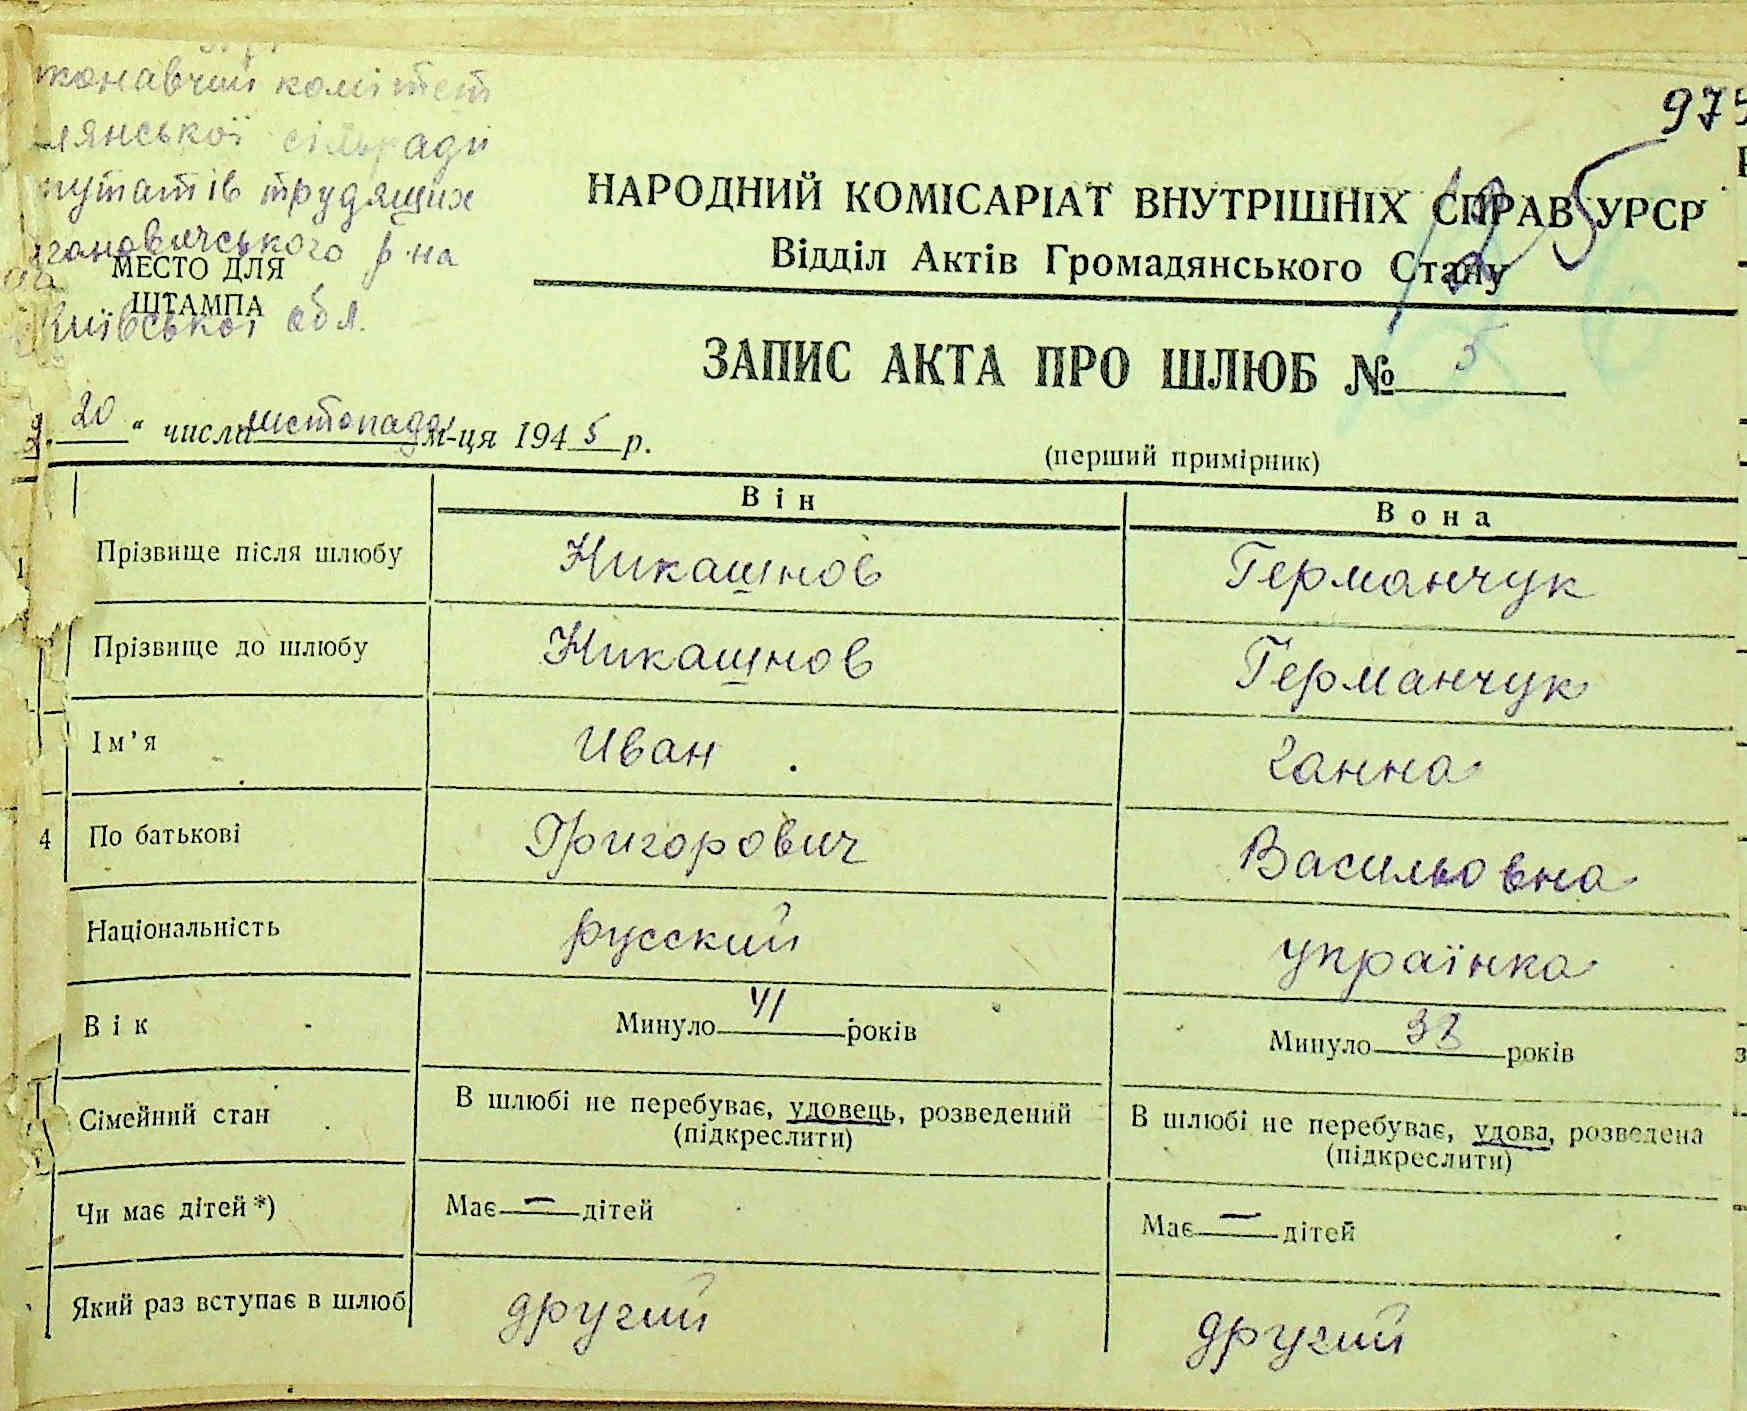 конавчий комітет
лянської сільради
путатів трудящих
гановичського р-на
МЕСТО ДЛЯ
ШТАМПА
Київської обл.
975
НАРОДНИЙ КОМІСАРІАТ ВНУТРІШНІХ СПРАВ УРСР
Відділ Актів Громадянського Стану
ЗАПИС АКТА ПРО ШЛЮБ № 5
20 " числа листопада м-ця 1945 р.
(перший примірник)
Він
Вона
1 Прізвище після шлюбу Никашнов Германчук
Прізвище до шлюбу Никашнов Германчук
Ім'я Иван Ганна
4 По батькові Григорович Васильовна
Національність русский українка
Вік Минуло 41 років Минуло 38 років
Сімейний стан В шлюбі не перебуває, удовець, розведений В шлюбі не перебуває, удова, розведена
(підкреслити) (підкреслити)
Чи має дітей*) Має — дітей Має — дітей
Який раз вступає в шлюб другий другий